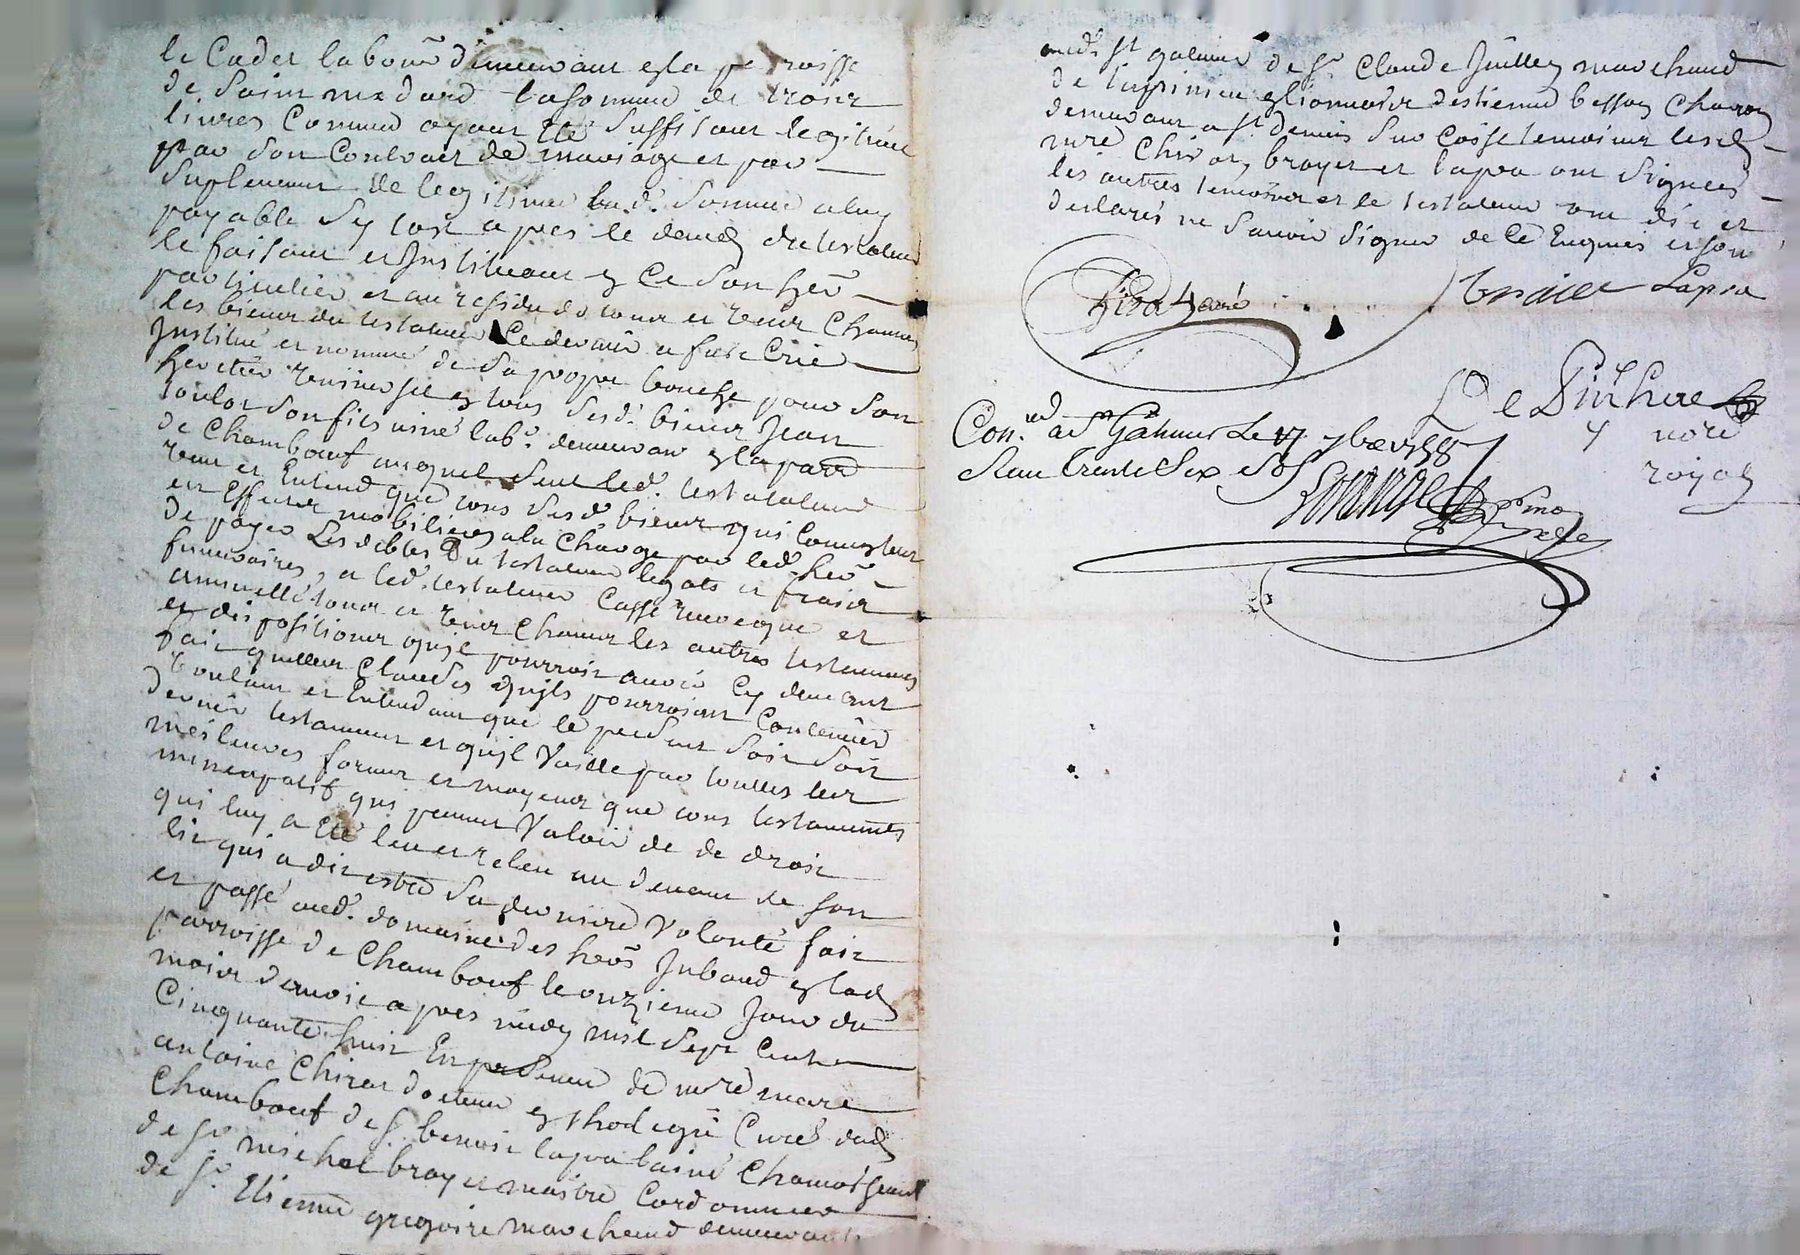 le Cadet labour demeurant en la parroisse
de Saint medard la somme de trois
livres Comme ayant Eté Suffisant legitimé
par son Contract de mariage et par
Suplement de legitime lad. Somme a luy
payable Sy tost apres le deced du testateur
le faisant et Instituant en Ce son her
particulier et au residu de tous et uns Chacuns
les biens du testateur Ce devant a fait Crié
Institué et nommé de Sa propre bouche pour Son
heretier universel en tous Sesd. biens Jean
son fils ainé lab. demeurant en la parr
de Chambœuf auquel Seul led. testatateur
veut et Entend que tous Sesd. biens qui Consistent
en Effets mobiliers a la Charge par led. her
de payer Les debtes du testateur legats et frais
funeraires, et led. testateur Casse revoque et
annulle tous et uns Chacuns les autres testaments
et dispositions quil pourroit avoir Cy devant
fait quelles Clauses quils pourroient Contenir
Voulant et Entendant que le present Soit Son
dernier testament et quil Vaille par touttes les
meileures formes et moyens que tous testaments
nuncupatif qui peuvent Valoir de de droit
qui luy a Eté leu et releu au devant de son
lit qui a dit estre Sa derniere Volonté fait
et passé aud. domaine des hers Jubaud en lad
parroisse de Chambœuf le onzieme Jour du
mois daout apres midy mil Sept Cents
Cinquante huit En presence de mre marc
antoine Chirat docteur en theologie Curé dud
Chambœuf de Sr. benoit lapra lainé
de Sr michel broyer maitre Cordonnier
de Sr. Etienne gregoire marchand demeurants
aud. St galmier de Sr. Claude Juilley marchand
de et Etienne besson Charon
demeurant a St denis Sur Coise temoins lesd
mre Chirat, broyer et lapra ont Signés
les autres temoins et le testateur ont dit et
declarés ne Savoir Signer de Ce Enquis et Som
Chirat Curé
broier Lapra
nore
royal
Con.led a St Galmier Le 17 7bre 1758
Reçu trente Six Sols